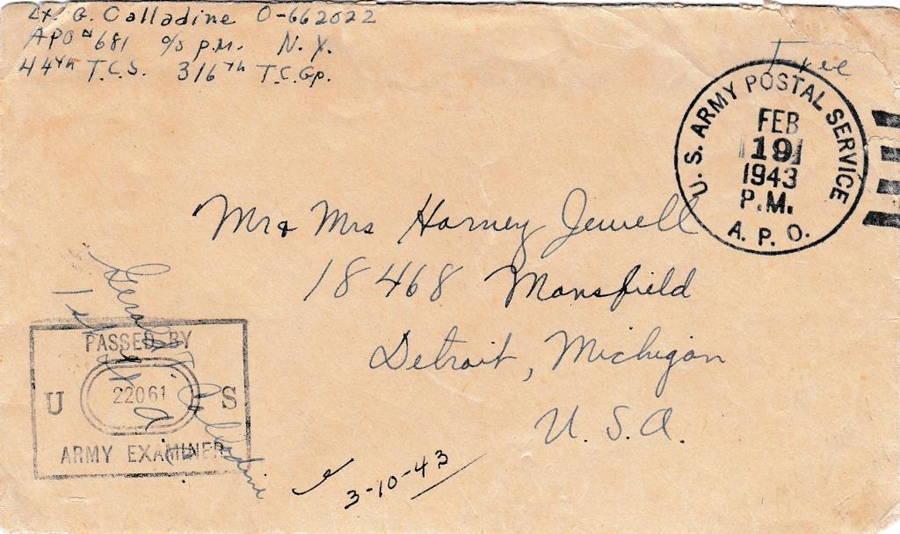 Lt. G. Calladine O-662022
APO #681 c/o P.M. N.Y.
44th T.C.S. 316th T.C.Gp.
Free
U. S. ARMY POSTAL SERVICE
FEB
19
1943
P.M.
A. P. O.
Mr & Mrs Harvey Jewell
18468 Mansfield
Detroit, Michigan
U. S. A.
Gerald Calladine
1st
PASSED BY
U 22061 S
ARMY EXAMINER
3-10-43